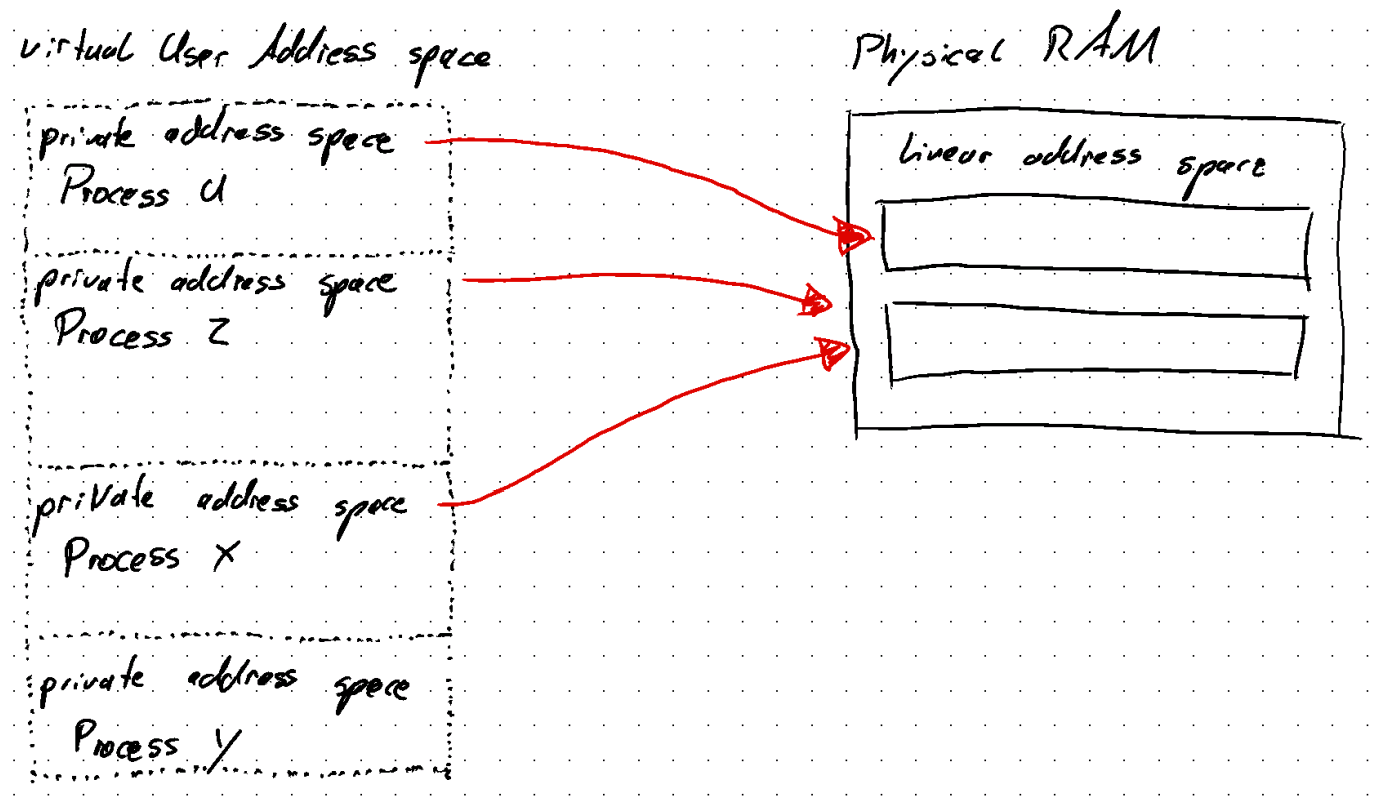 virtual User Address space
Physical RAM
private address space
Process U
private address space
Process Z
private address space
Process X
private address space
Process y
Linear address space